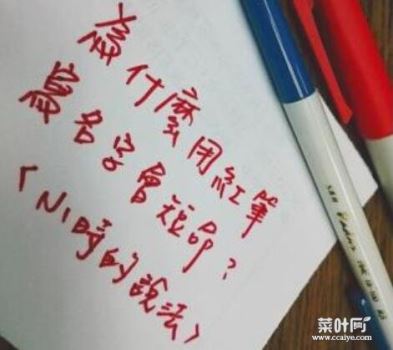 為什麼用紅筆
寫名字會短命?
(小時的說法)
菜叶网
www.ccaiye.com